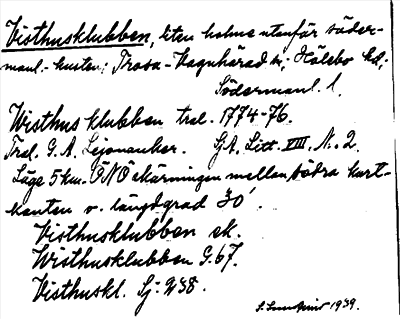 Visthusklubben, liten holme utanför söder-
manl.-kusten; Trosa-Vagnhärad sn; Hölebo hd;
Södermanl. l.
Wisthus klubben trol. 1774-76.
Trol. G. A. Lejonancker. SjA. Litt. VIII. N. 2.
Läge 5 km. ÖNÖ skärningen mellan södra kart-
kanten o. längdgrad 30'.
Visthusklubben ek.
Wisthusklubben G. 67.
Visthuskl. Sj. 238.
1939.